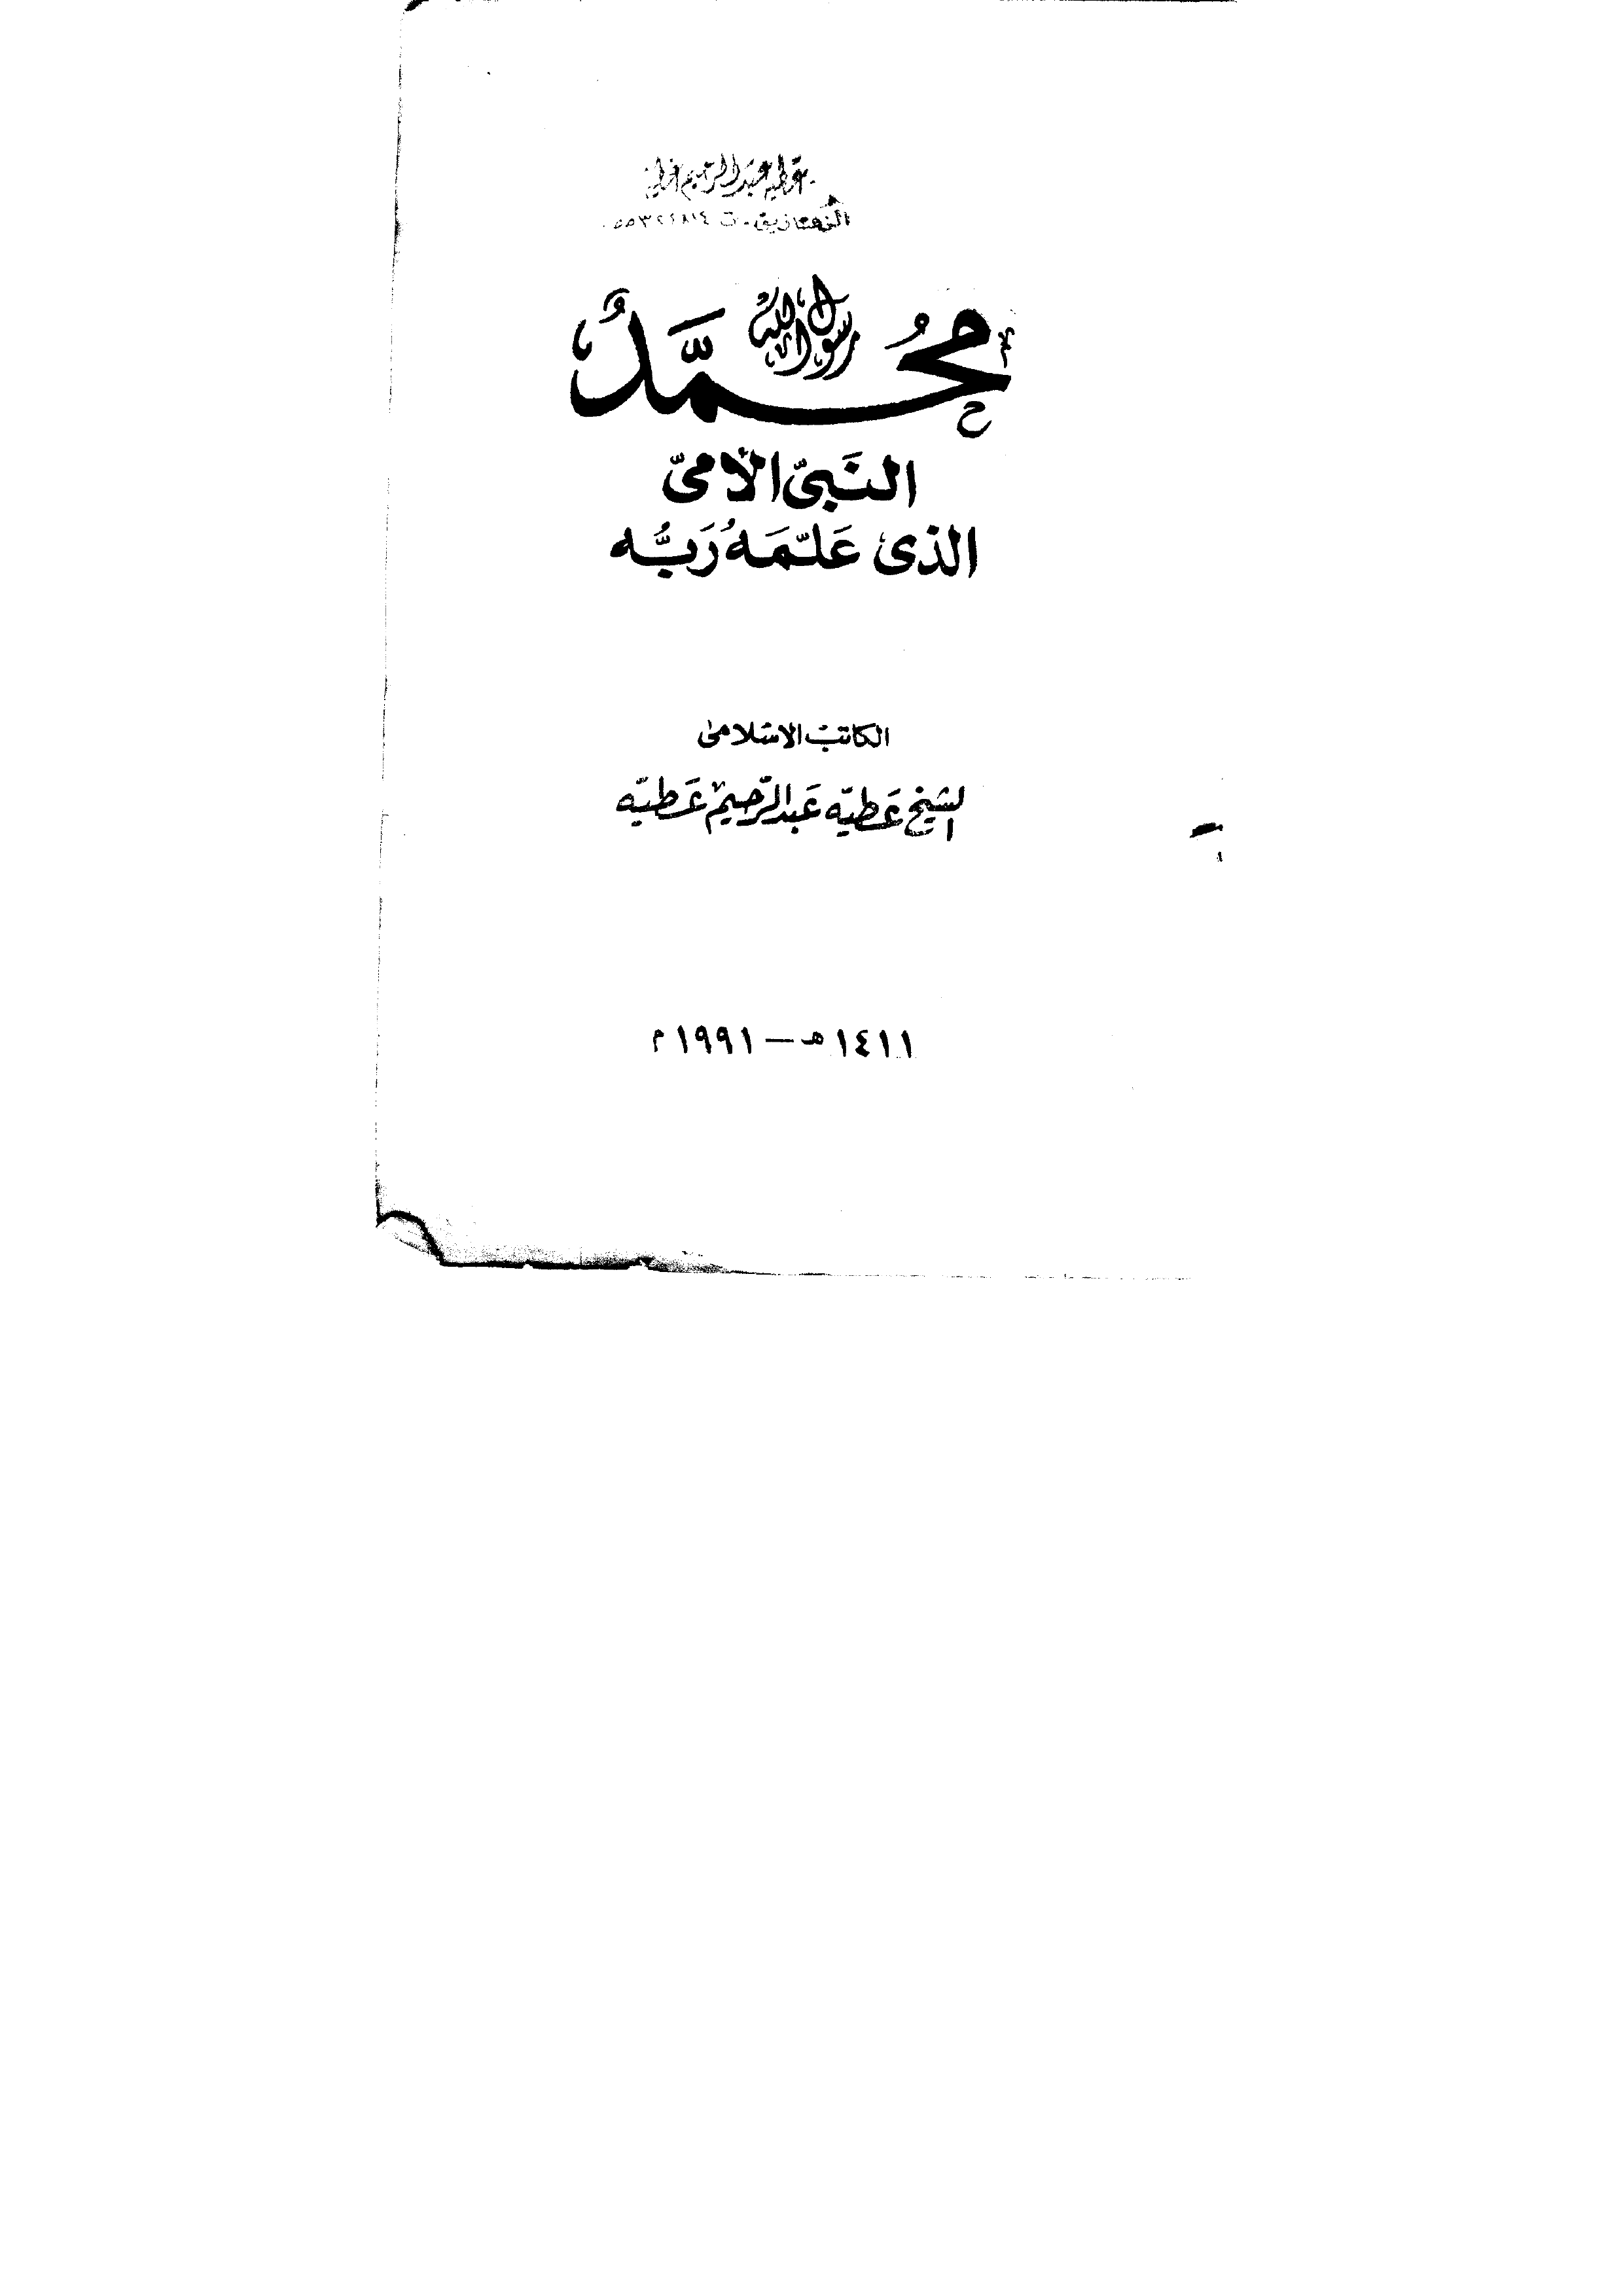 عطيه عبد الرحيم عطيه
الزقازيق - ت
مُحَمَّدٌ رسول الله
النَبيّ الأمىّ
الذى عَلّمَهُ رَبُّه
الكاتب الاسلامى
الشيخ عَطيّه عَبد الرّحيم عَطيّه
١٤١١ هـ – ١٩٩١ م